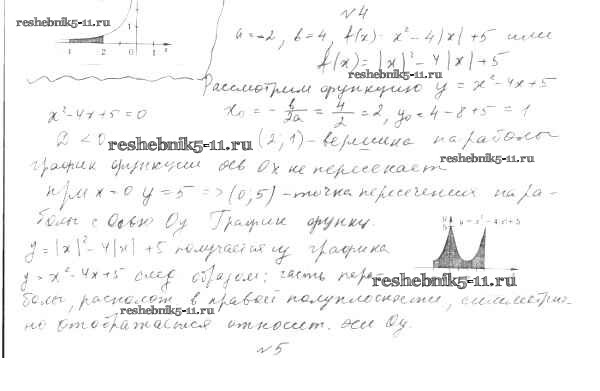 reshebnik5-11.ru
1
-4 -2 0 1 x
№4
a=-2, b=4, f(x)= x²-4|x|+5 или
f(x)=|x|²-4|x|+5
reshebnik5-11.ru
Рассмотрим функцию y = x²-4x+5
x²-4x+5=0
x₀ = -b/2a = 4/2 = 2, y₀=4-8+5=1
D<0
reshebnik5-11.ru
(2;1)-вершина параболы
reshebnik5-11.ru
график функции ось Ox не пересекает
при x=0 y=5 => (0;5)-точка пересечения пара-
болы с осью Oy График функц.
y=|x|²-4|x|+5 получается из графика
y=x²-4x+5 след образом: часть пара-
reshebnik5-11.ru
болы, располож в правой полуплоскости, симметрич-
reshebnik5-11.ru
но отображается относит. оси Oy.
№5